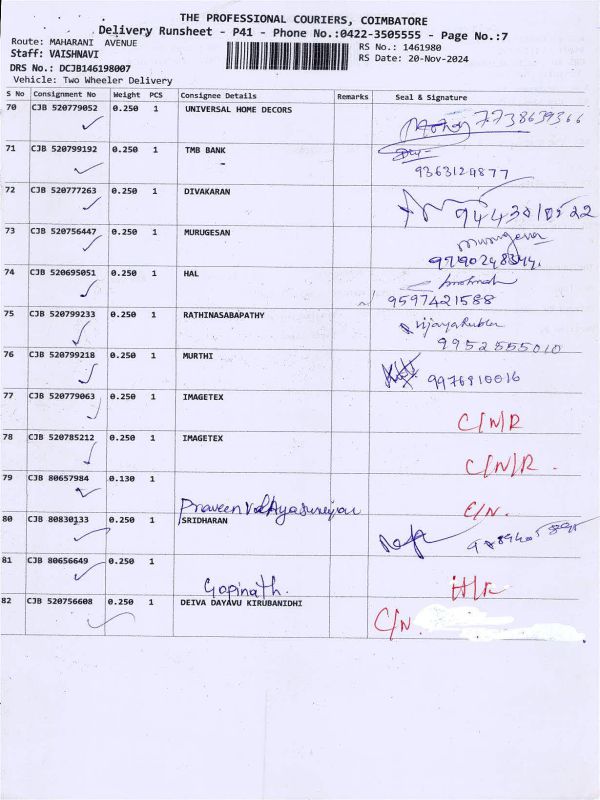 THE PROFESSIONAL COURIERS, COIMBATORE
Delivery Runsheet - P41 - Phone No.:0422-3505555 - Page No.:7
Route: MAHARANI AVENUE RS No.: 1461980
Staff: VAISHNAVI RS Date: 20-Nov-2024
DRS No.: DCJB146198007
Vehicle: Two Wheeler Delivery
S No Consignment No Weight PCS Consignee Details Remarks Seal & Signature
70 CJB 520779052 0.250 1 UNIVERSAL HOME DECORS 7738639366
71 CJB 520799192 0.250 1 TMB BANK
9363124877
72 CJB 520777263 0.250 1 DIVAKARAN
73 CJB 520756447 0.250 1 MURUGESAN
74 CJB 520695051 0.250 1 HAL
9597421588
75 CJB 520799233 0.250 1 RATHINASABAPATHY
9952555010
76 CJB 520799218 0.250 1 MURTHI
9976910016
77 CJB 520779063 0.250 1 IMAGETEX
C/N/R
78 CJB 520785212 0.250 1 IMAGETEX
C/N/R.
79 CJB 80657984 0.130 1
Praveen C/N.
80 CJB 80830133 0.250 1 SRIDHARAN
81 CJB 80656649 0.250 1
Gopinath.
82 CJB 520756608 0.250 1 DEIVA DAYAVU KIRUBANIDHI
C/N.